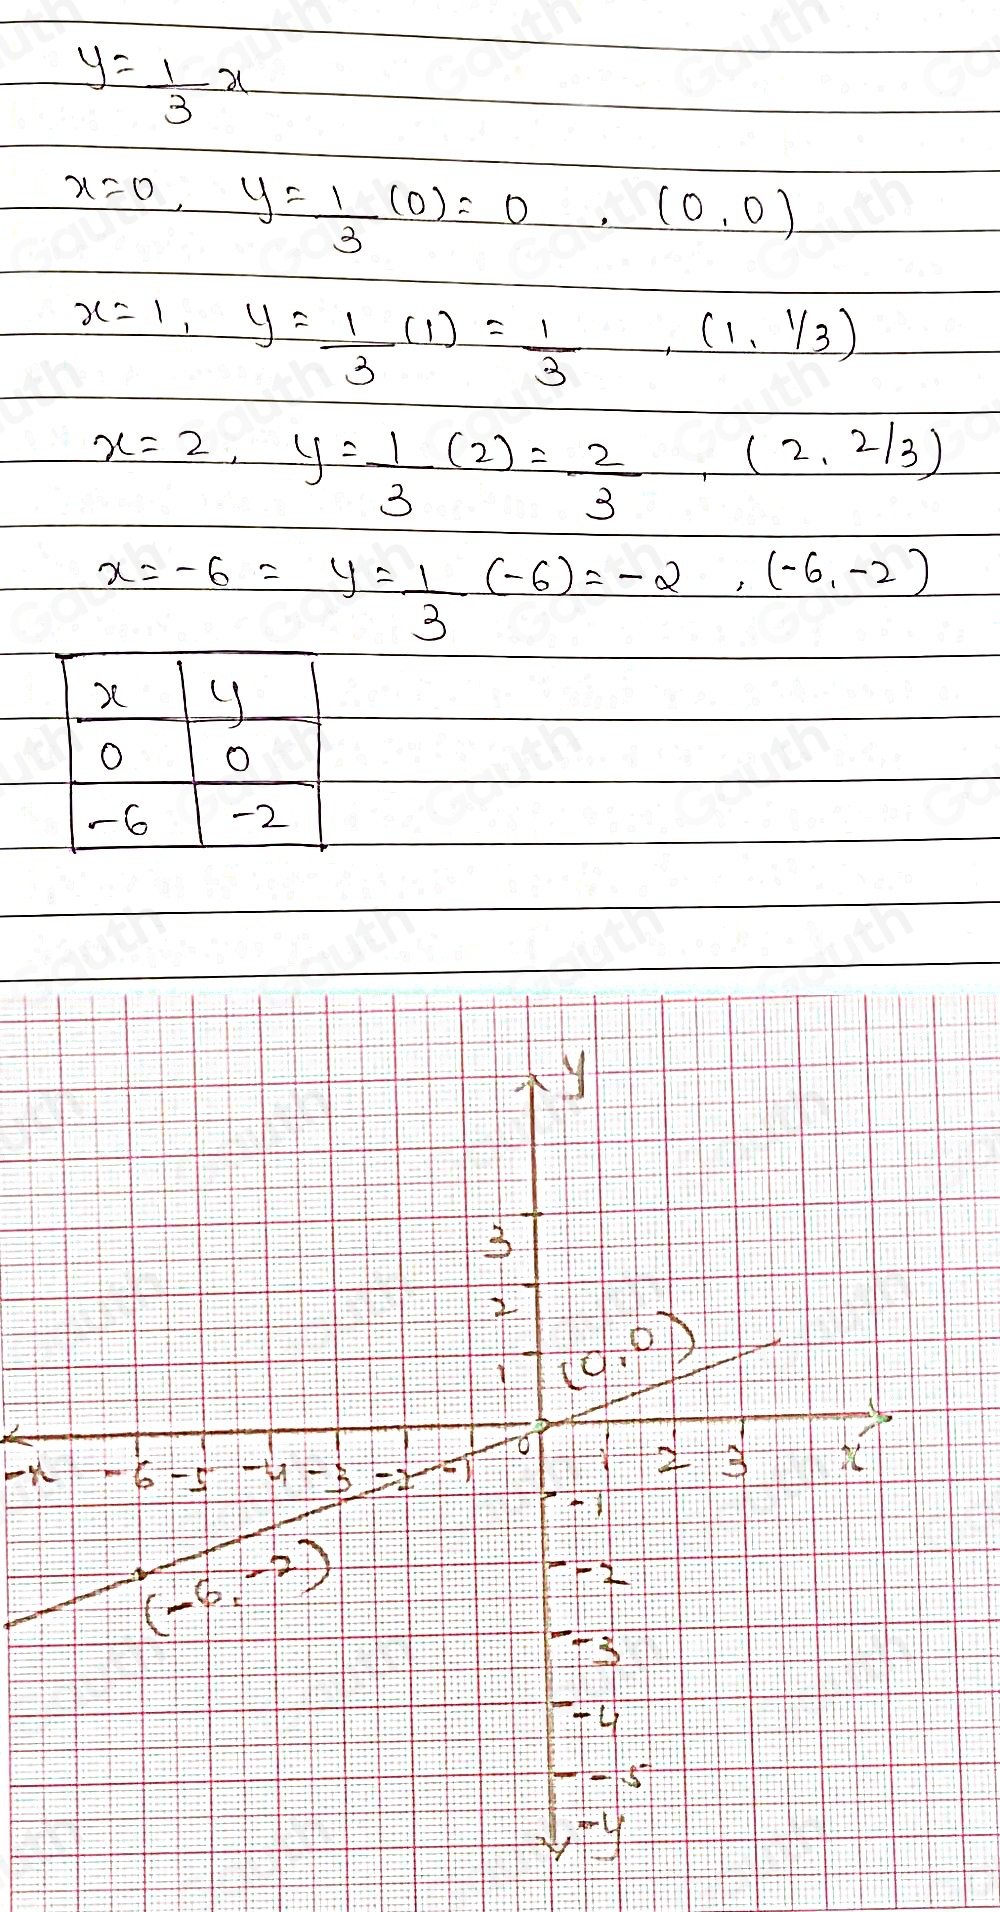 y = 1/3 x
x=0, y = 1/3 (0) = 0, (0,0)
x=1, y = 1/3 (1) = 1/3, (1, 1/3)
x=2, y = 1/3 (2) = 2/3, (2, 2/3)
x=-6 = y = 1/3 (-6) = -2, (-6,-2)
x y
0 0
-6 -2
y
3
2
1 (0,0)
-x -6 -5 -4 -3 -2 -1 0 1 2 3 x
-1
(-6,-2) -2
-3
-4
-5
-y
Gauth